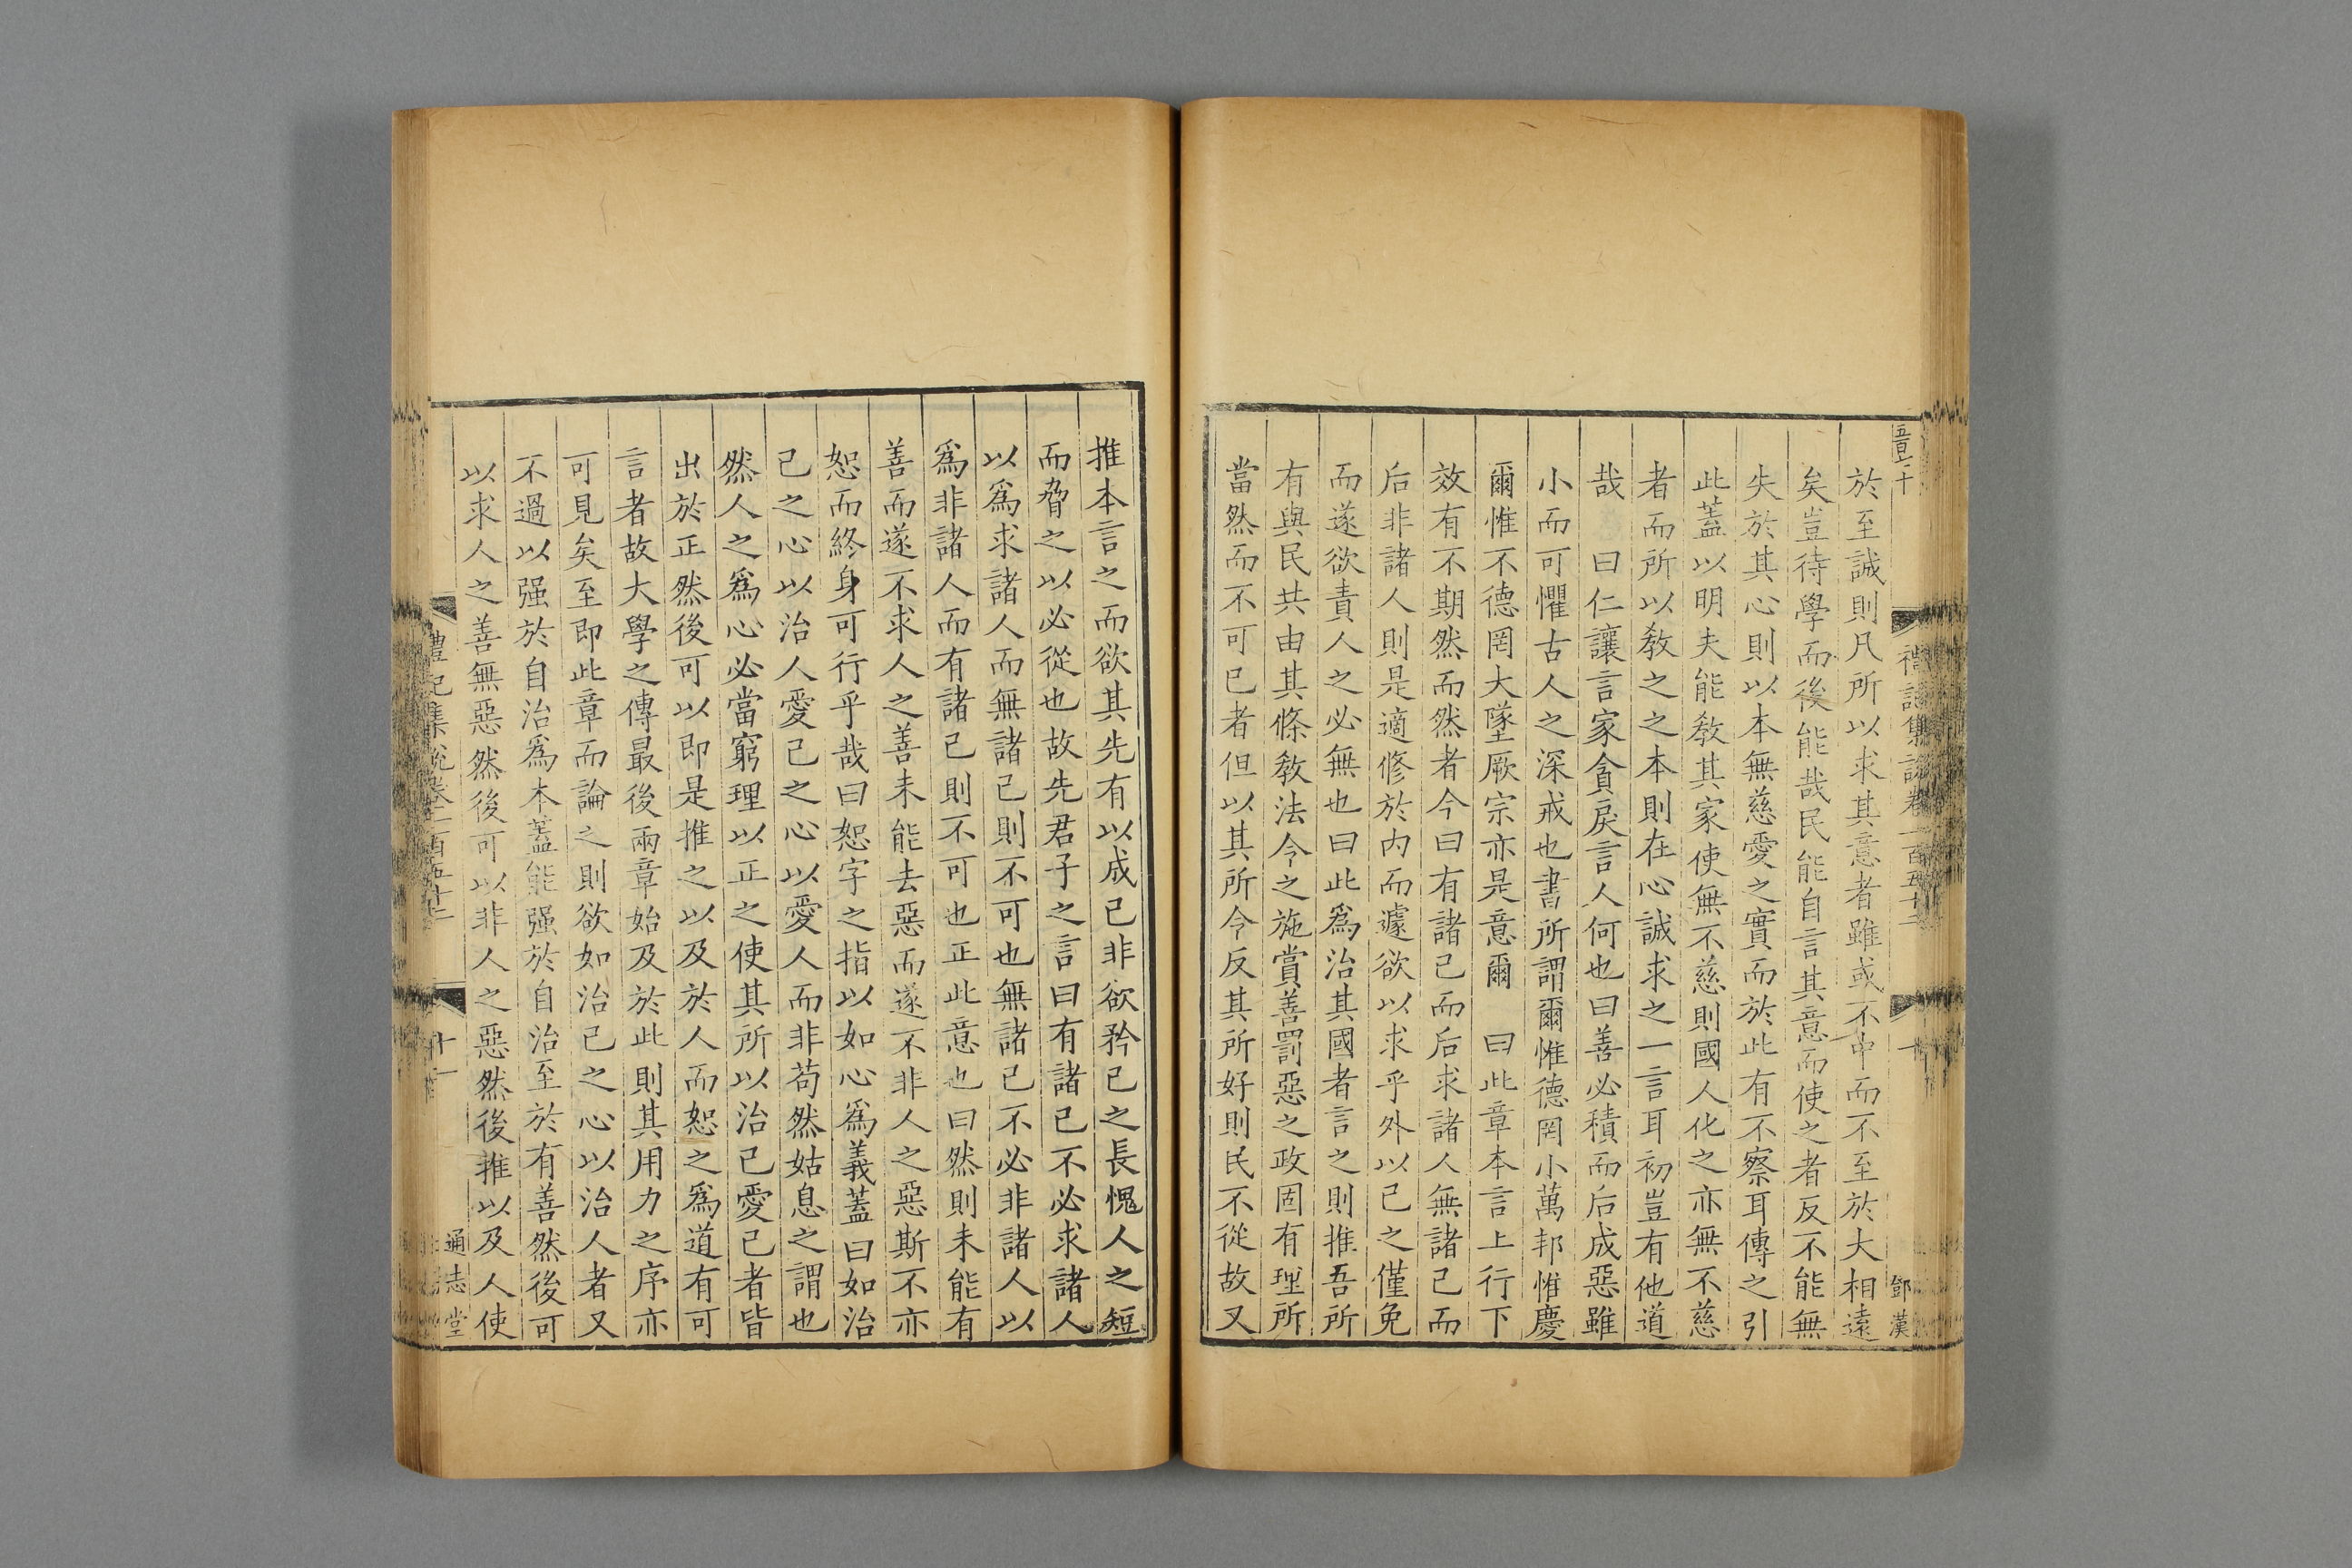 於至誠則凡所以求其意者雖或不中而不至於大相遠
矣豈待學而後能哉民能自言其意而使之者反不能無
失於其心則以本無慈愛之實而於此有不察耳傳之引
此蓋以明夫能敎其家使無不慈則國人化之亦無不慈
者而所以敎之之本則在心誠求之一言耳初豈有他道
哉　曰仁讓言家貪戾言人何也曰善必積而后成惡雖
小而可懼古人之深戒也書所謂爾惟德罔小萬邦惟慶
爾惟不德罔大墜厥宗亦是意爾　曰此章本言上行下
效有不期然而然者今曰有諸己而后求諸人無諸己而
后非諸人則是適修於内而遽欲以求乎外以己之僅免
而遂欲責人之必無也曰此爲治其國者言之則推吾所
有與民共由其條敎法令之施賞善罰惡之政固有理所
當然而不可已者但以其所令反其所好則民不從故又
推本言之而欲其先有以成己非欲矜己之長愧人之短
而脅之以必從也故先君子之言曰有諸己不必求諸人
以爲求諸人而無諸己則不可也無諸己不必非諸人以
爲非諸人而有諸己則不可也正此意也曰然則未能有
善而遂不求人之善未能去惡而遂不非人之惡斯不亦
恕而終身可行乎哉曰恕字之指以如心爲義蓋曰如治
己之心以治人愛己之心以愛人而非苟然姑息之謂也
然人之爲心必當窮理以正之使其所以治己愛己者皆
出於正然後可以即是推之以及於人而恕之爲道有可
言者故大學之傳最後兩章始及於此則其用力之序亦
可見矣至即此章而論之則欲如治己之心以治人者又
不過以强於自治爲本蓋能强於自治至於有善然後可
以求人之善無惡然後可以非人之惡然後推以及人使
禮記集說卷一百五十二
十一
通志堂
鄧漢